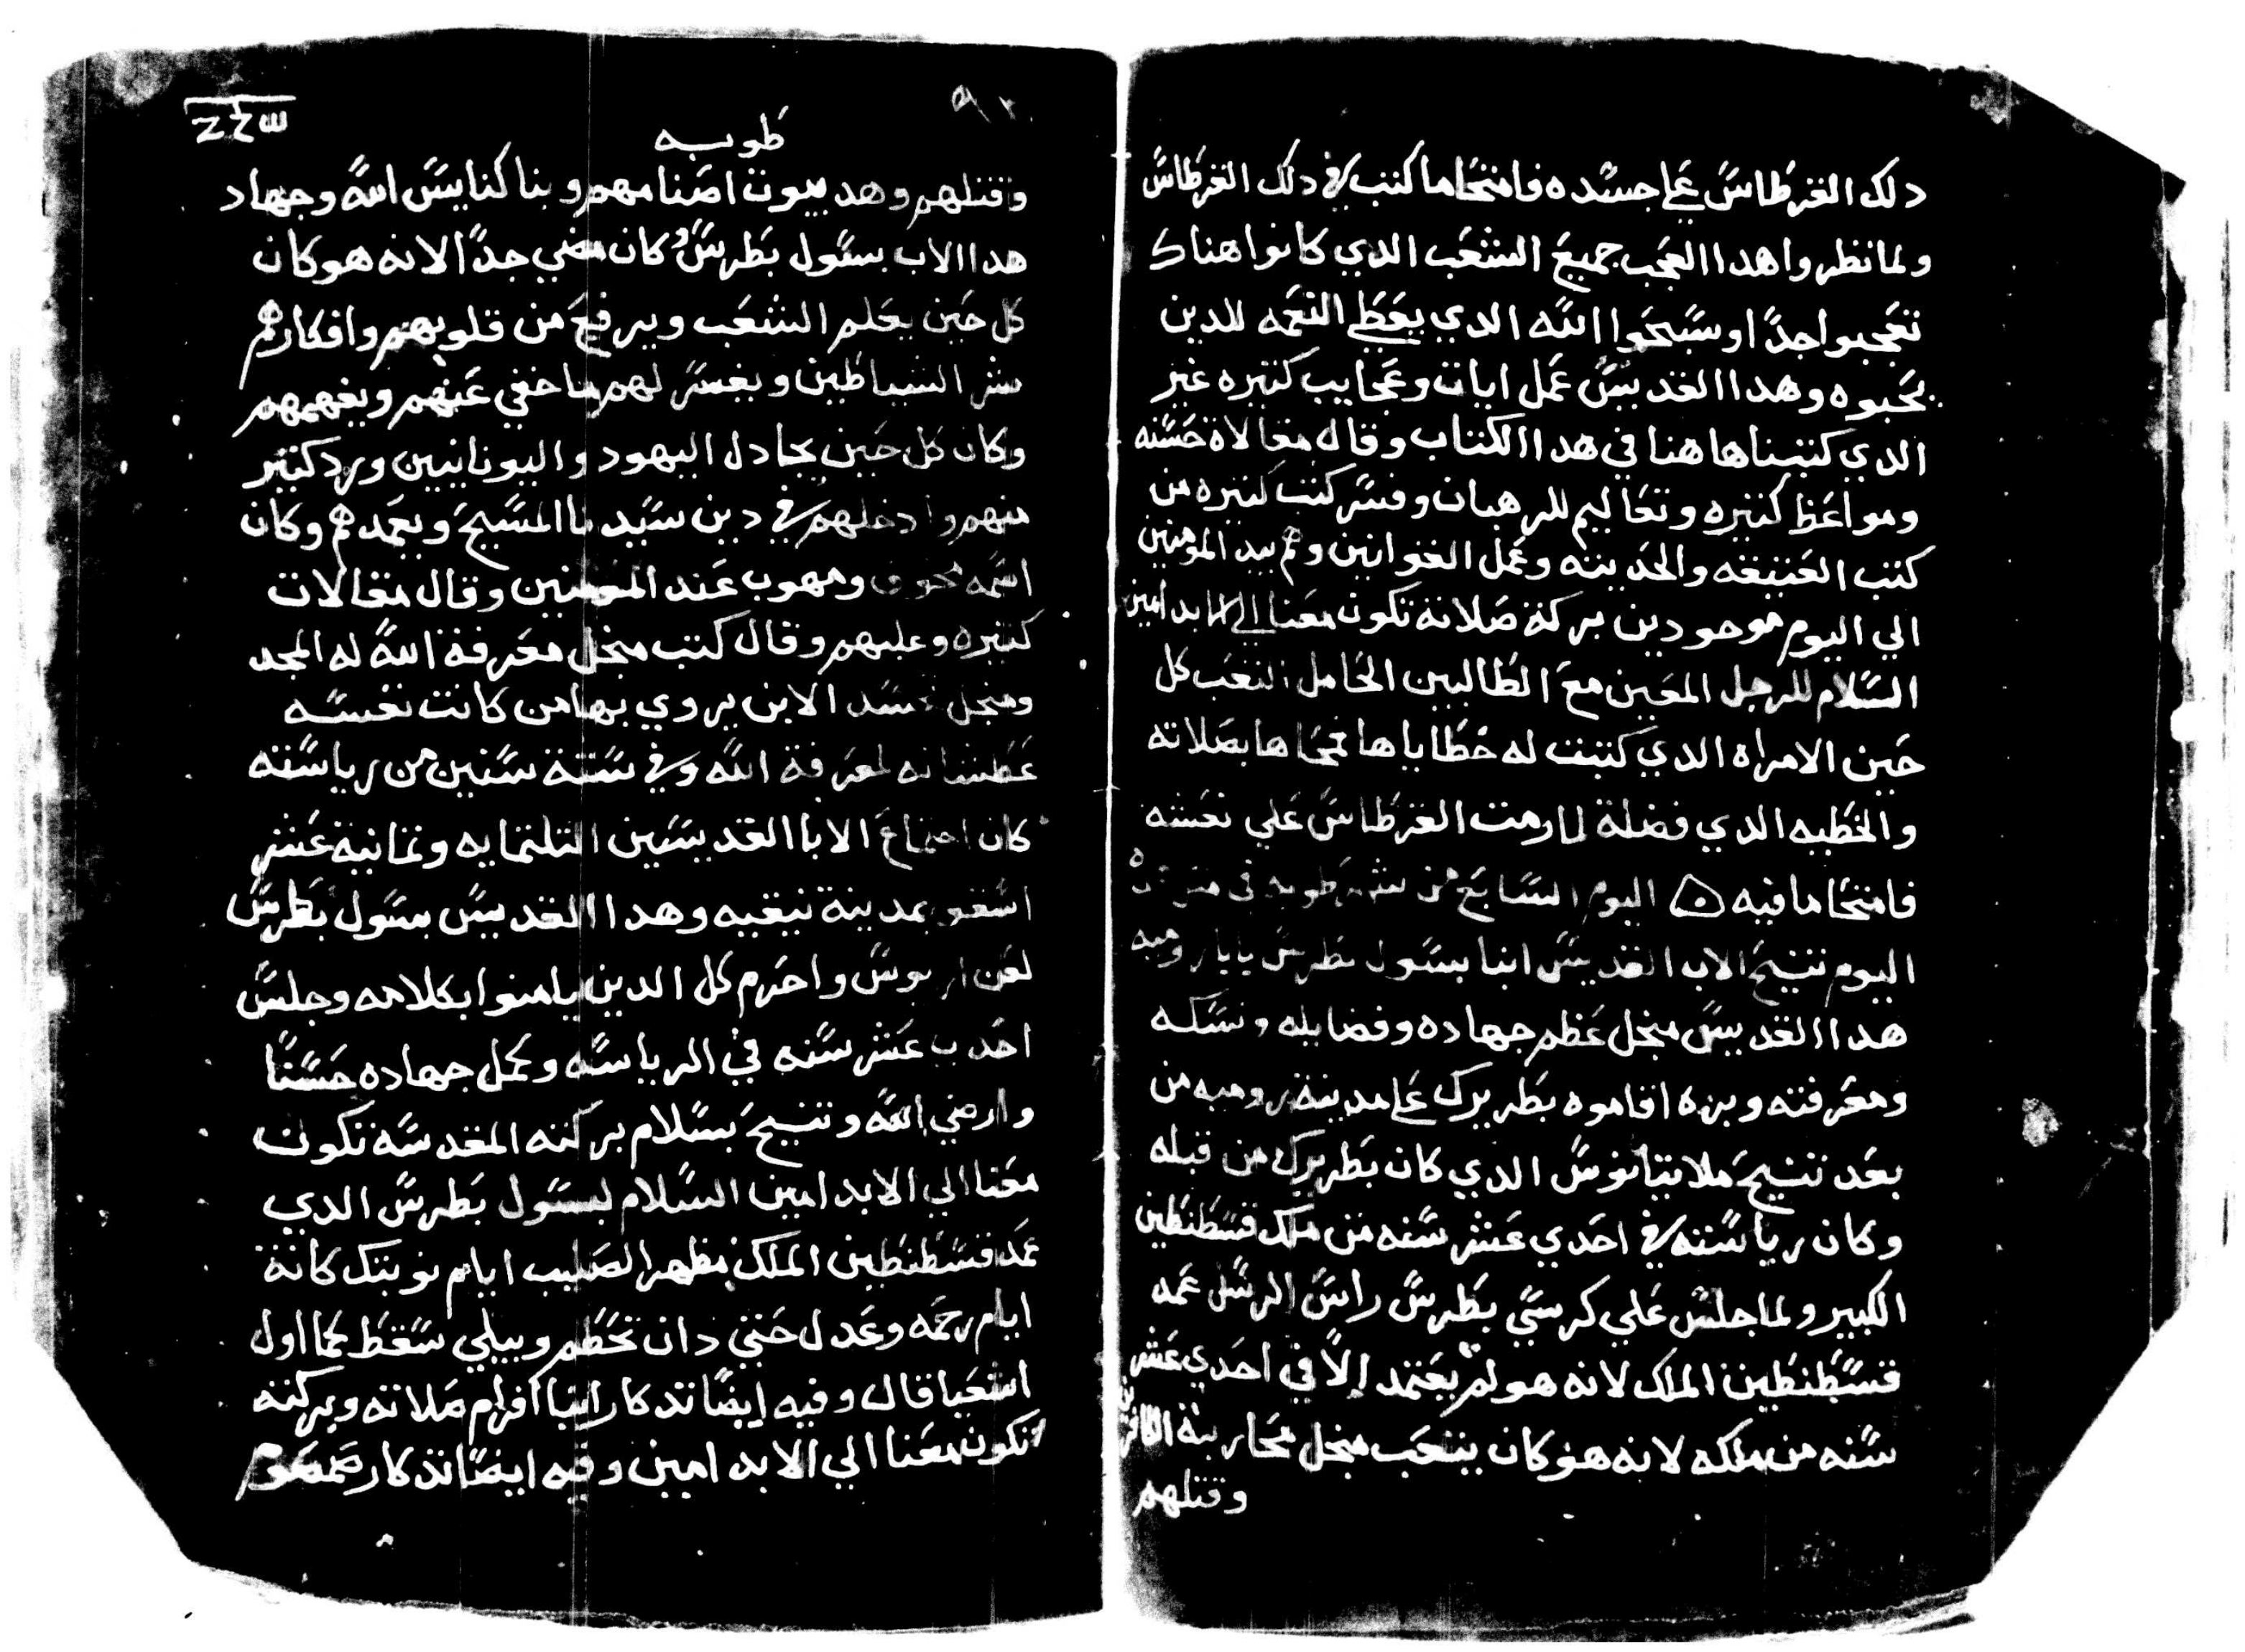 دلك القرطاس علي جسده فامتحا ما كتب في دلك القرطاس
ولما نظروا هدا العجب جميع الشعب الدي كانوا هناك
تعجبوا جدا وسبحوا الله الدي يعطي النعمه للدين
يحبوه وهدا القديس عمل ايات وعجايب كتيره غير
الدي كتبناها هنا في هدا الكتاب وقال مقالاة حسنه
ومواعظ كتيره وتعاليم للرهبان وفسر كتب كتيره من
كتب العتيقه والحديته وعمل القوانين وهم بيد المومنين
الي اليوم موجودين بركة صلاته تكون معنا الي الابد امين
السلام للرجل المعين مع الطالبين الحامل التعب كل
حين الامراه الدي كتبت له خطاياها فمحاها بصلاته
والخطيه الدي فضلة لما رمت القرطاس علي نعشه
فامتحا ما فيه اليوم السابع من شهر طوبه في
اليوم تنيح الاب القديس انبا بسول بطرس بابا روميه
هدا القديس منجل عظم جهاده وفضايله ونسكه
ومعرفته وبره اقاموه بطريرك علي مدينة روميه من
بعد تنيح ملاتيانوس الدي كان بطريرك من قبله
وكان رياسته في احدي عشر سنه من ملك قسطنطين
الكبير ولما جلس علي كرسي بطرس راس الرسل عمد
قسطنطين الملك لانه هو لم يعتمد الا في احدي عشر
سنه من ملكه لانه هو كان يتعب منجل محاربة
وقتلهم
طوبه
وقتلهم وهد بيوت اصنامهم وبنا كنايس الله وجهاد
هدا الاب بسول بطرس وكان مضي جدا لانه هو كان
كل حين يعلم الشعب ويرفع من قلوبهم وافكارهم
شر الشياطين ويفسر لهم ما خفي عنهم ويفهمهم
وكان كل حين يجادل اليهود واليونانيين ورد كتير
منهم وادخلهم في دين سيدنا المسيح ويعمدهم وكان
اسمه مخوف ومهوب عند المومنين وقال مقالات
كتيره وعليهم وقال كتب منجل معرفة الله له المجد
ومنجل تجسد الابن يروي بها من كانت نفسه
عطشانه لمعرفة الله وفي ستة سنين من رياسته
كان اجتماع الابا القديسين التلتمايه وتمانية عشر
اسقف بمدينة نيقيه وهدا القديس بسول بطرس
لعن اريوس واحرم كل الدين يامنوا بكلامه وجلس
احدي عشر سنه في الرياسه وكمل جهاده حسنا
وارضي الله وتنيح بسلام بركته المقدسه تكون
معنا الي الابد امين السلام لبسول بطرس الدي
عمد قسطنطين الملك مظهر الصليب ايام نوبتك كانة
ايام رحمه وعدل حتي دان تحطم وبيلي سقط كما اول
اشعيا قال وفيه ايضا تدكار انبا افرام صلاته وبركته
تكون معنا الي الابد امين وفيه ايضا تدكار